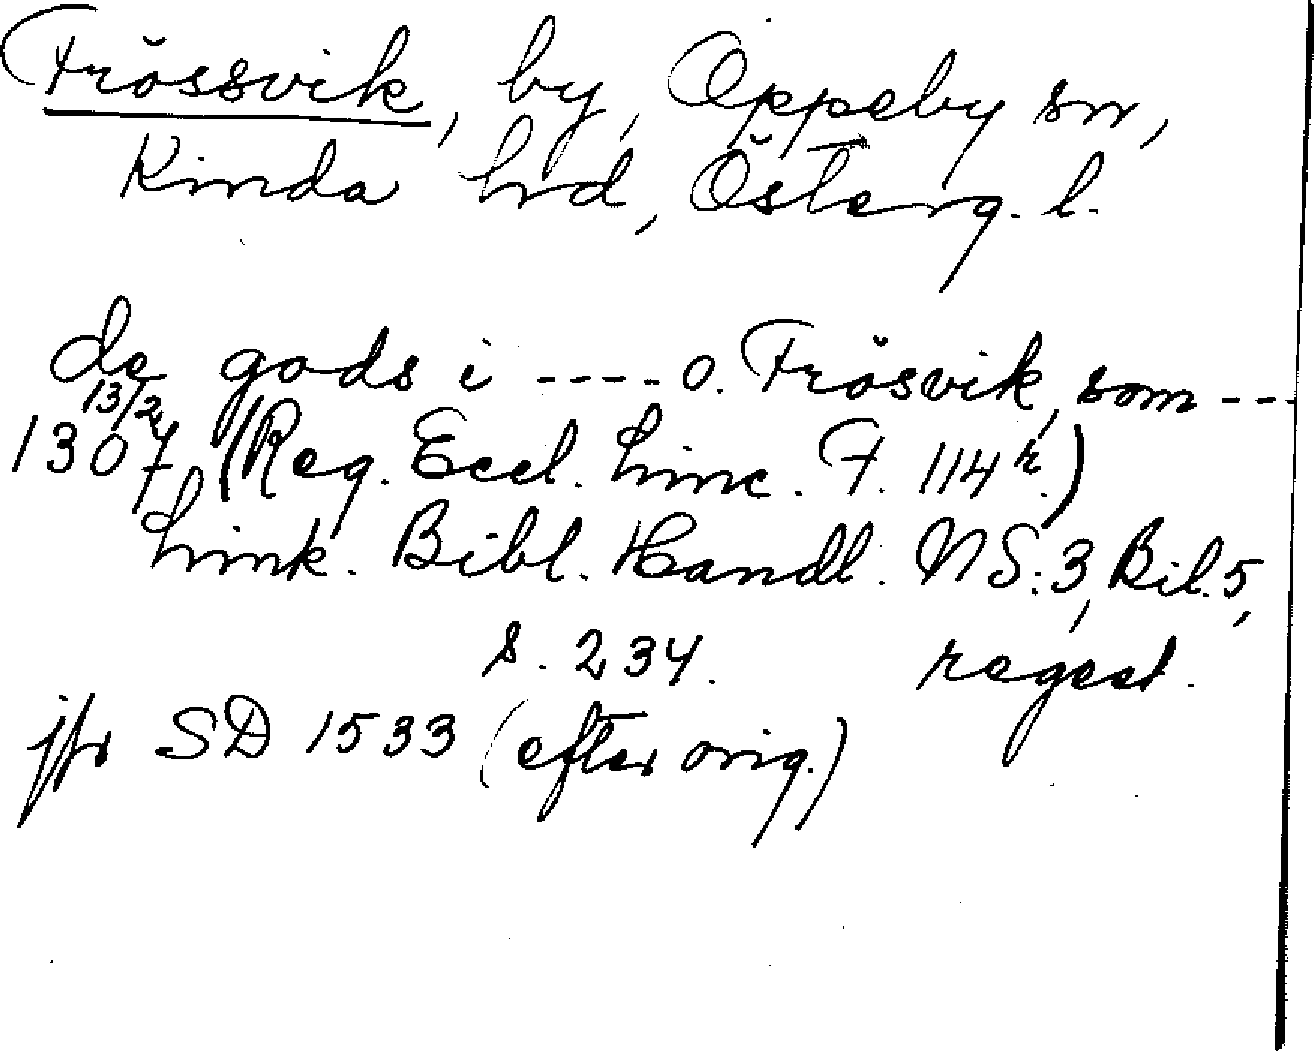 Frössvik, by, Oppeby sn,
Kinda hrd, Österg. l.
de gods i ---- o. Frösvik, som ---
13/2 1307 (Reg. Eccl. Linc. F. 114 r.)
Link. Bibl. Handl. NS. 3, Bil. 5,
s. 234. regest.
jfr SD 1533 (efter orig.)